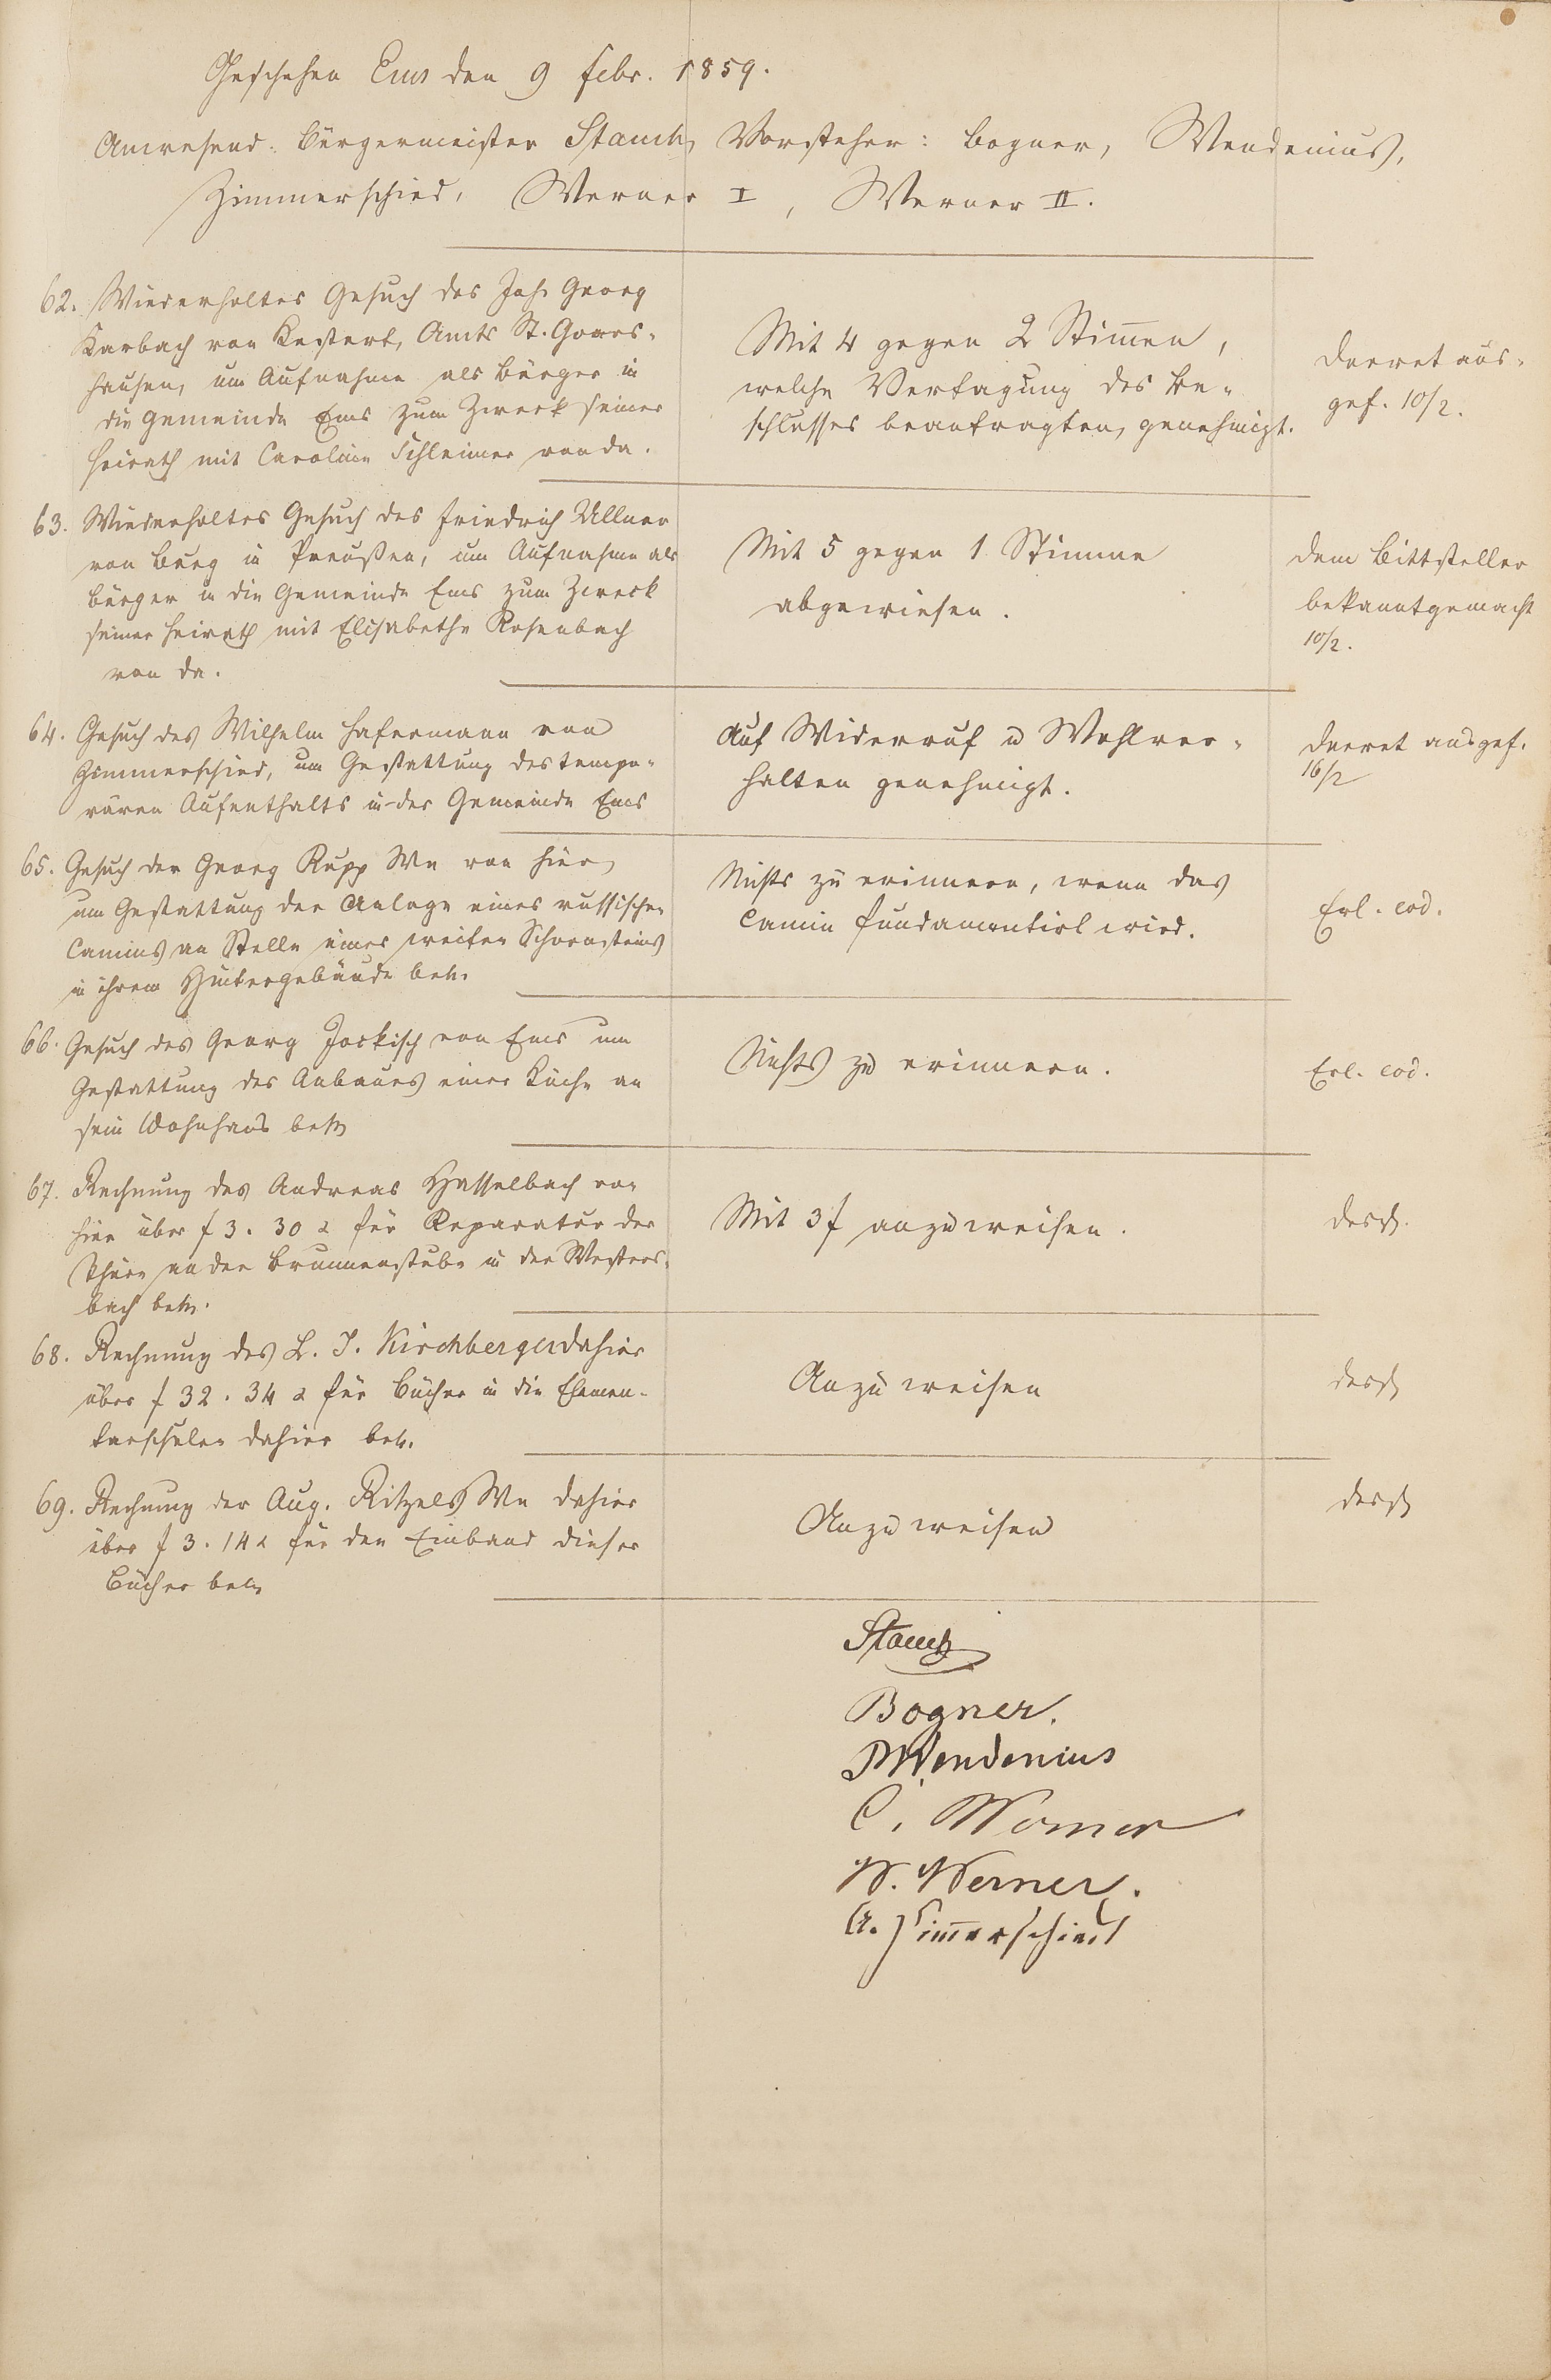 Geschehen Ems den 9 Febr. 1859.
Anwesend: Bürgermeister Stauch, Vorsteher: Bogner, Wendenius,
Zimmerschied, Werner I, Werner II.
62. Wiederholtes Gesuch des Joh. Georg
Karbach von Kestert, Amts St. Goars-
hausen, um Aufnahme als Bürger in
die Gemeinde Ems zum Zweck seiner
Heirath mit Caroline Schleimer von da.
Mit 4 gegen 2 Stimmen,
welche Vertagung des Be-
schlusses beantragten, genehmigt.
Decret aus-
gef. 10/2.
63. Wiederholtes Gesuch des Friedrich Ullner
von Burg in Preußen, um Aufnahme als
Bürger in die Gemeinde Ems zum Zweck
seiner Heirath mit Elisabethe Rosenbach
von da.
Mit 5 gegen 1 Stimme
abgewiesen.
Dem Bittsteller
bekanntgemacht
10/2.
64. Gesuch des Wilhelm Hafermann von
Zimmerschied, um Gestattung des tempo-
rären Aufenthalts in der Gemeinde Ems
Auf Widerruf u Wohlver-
halten genehmigt.
Decret ausgef.
16/2
65. Gesuch der Georg Rupp We von hier,
um Gestattung der Anlage eines russischen
Camins an Stelle eines weiten Schornsteins
in ihrem Hintergebäude betr.
Nichts zu erinnern, wenn das
Camin fundamentirt wird.
Erl. eod.
66. Gesuch des Georg Jockisch von Ems um
Gestattung des Anbaues einer Küche an
sein Wohnhaus betr
Nichts zu erinnern.
Erl. eod.
67. Rechnung des Andreas Hasselbach von
hier über f 3. 30 x für Reparatur der
Thüre an der Brunnenstube in der Westers-
bach betr.
Mit 3 f anzuweisen.
desgl.
68. Rechnung des L. J. Kirchberger dahier
über f 32. 34 x für Bücher in die Elemen-
tarschulen dahier betr.
Anzuweisen
desgl
69. Rechnung der Aug. Ritzels We dahier
über f 3. 14 x für den Einband dieser
Bücher betr
Anzuweisen
desgl
Stauch
Bogner.
Wendenius
C. Werner
W. Werner.
A. Zimmerschied